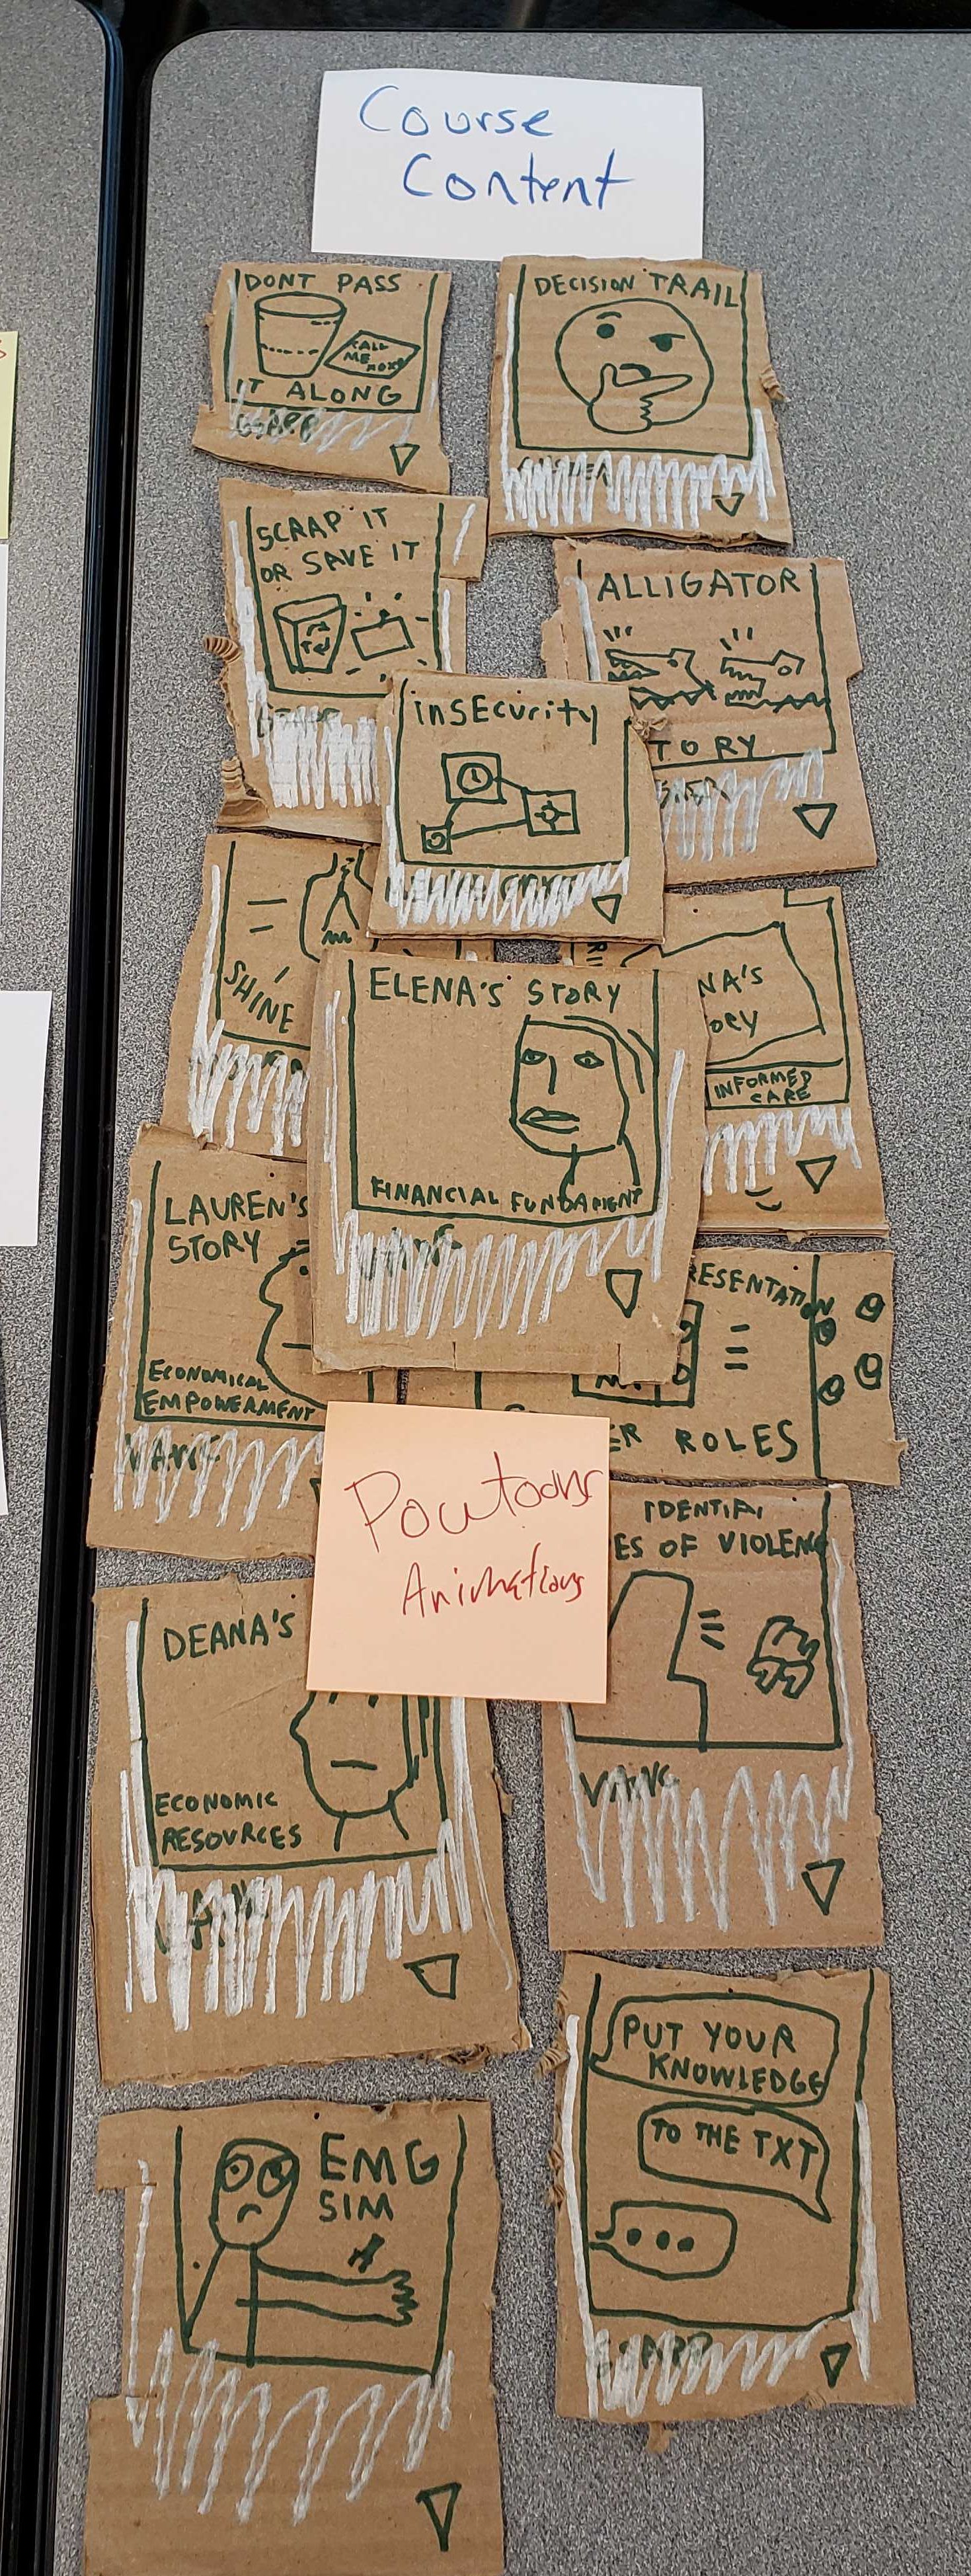 Course
Content
DONT PASS
CALL
ME
IT ALONG
DECISION TRAIL
SCRAP IT
OR SAVE IT
ALLIGATOR
TORY
inSEcurity
SHINE
ELENA'S STORY
FINANCIAL FUNDAMENT
NA'S
ORY
INFORMED
CARE
LAUREN'S
STORY
ECONOMICAL
EMPOWERMENT
RESENTATION
=
ER ROLES
Powtoons
Animations
IDENTIFY
ES OF VIOLENC
DEANA'S
ECONOMIC
RESOURCES
PUT YOUR
KNOWLEDGE
TO THE TXT
...
EMG
SIM